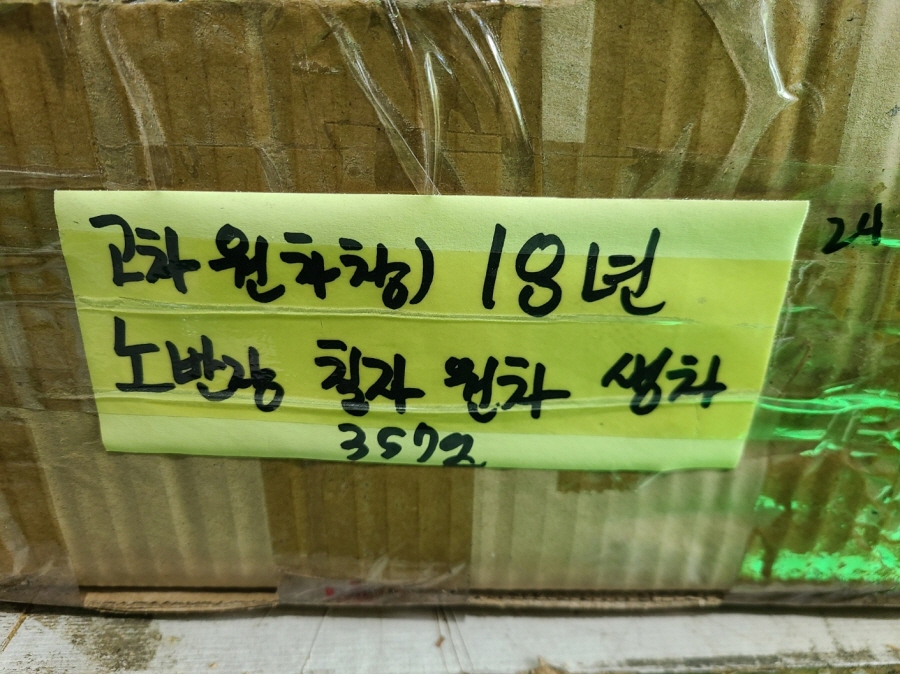 고차 원차창) 18년
24
노반장 칠자 원차 생차
357g